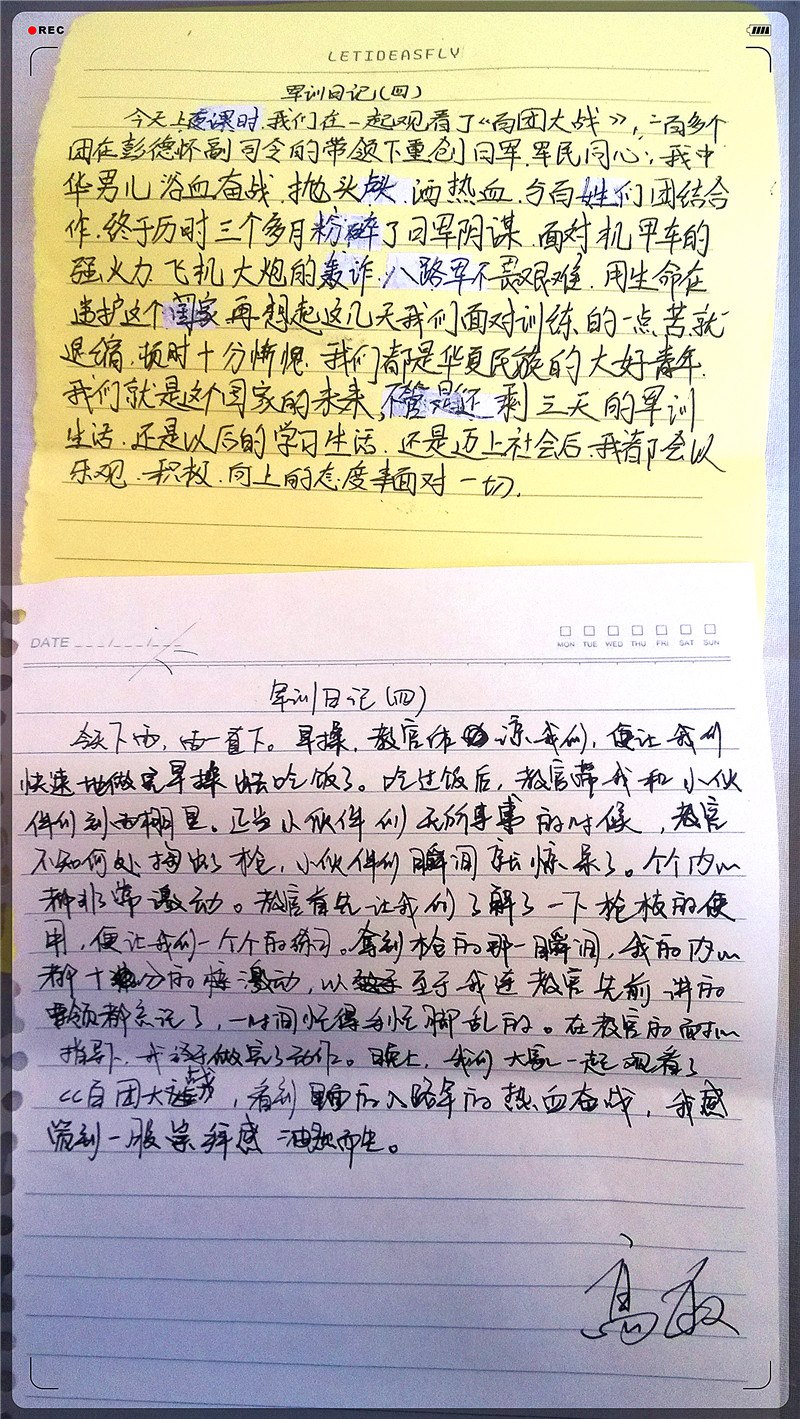 REC
LETIDEASFLY
军训日记(四)
今天上夜课时.我们在一起观看了《百团大战》,二百多个
团在彭德怀副司令的带领下重创日军.军民同心,我中
华男儿浴血奋战.抛头颅.洒热血.与百姓们团结合
作.终于历时三个多月粉碎了日军阴谋.面对机甲车的
强火力.飞机大炮的轰炸.八路军不畏艰难.用生命在
维护这个国家.再想起这几天我们面对训练的一点苦就
退缩,顿时十分惭愧.我们都是华夏民族的大好青年.
我们就是这个国家的未来,不管是还剩三天的军训
生活.还是以后的学习生活.还是迈上社会后.我都会以
乐观.积极.向上的态度面对一切.
DATE / /
MON TUE WED THU FRI SAT SUN
军训日记(四)
今天下雨,雨一直下。早操,教官体谅我们,便让我们
快速地做完早操去吃饭了。吃过饭后,教官带我和小伙
伴们到雨棚里。正当小伙伴们无所事事的时候,教官
不知何处掏出了枪,小伙伴们瞬间就惊呆了。个个内心
都非常激动。教官首先让我们了解了一下枪械的使
用,便让我们一个个的练习。拿到枪的那一瞬间,我的内心
都十分的激动,以至于我连教官先前讲的
要领都忘记了,一时间忙得手忙脚乱的。在教官的耐心
指导下,我终于做完了动作。晚上,我们大家一起观看了
《百团大战》,看到里面的八路军的热血奋战,我感
觉到一股崇拜感油然而生。